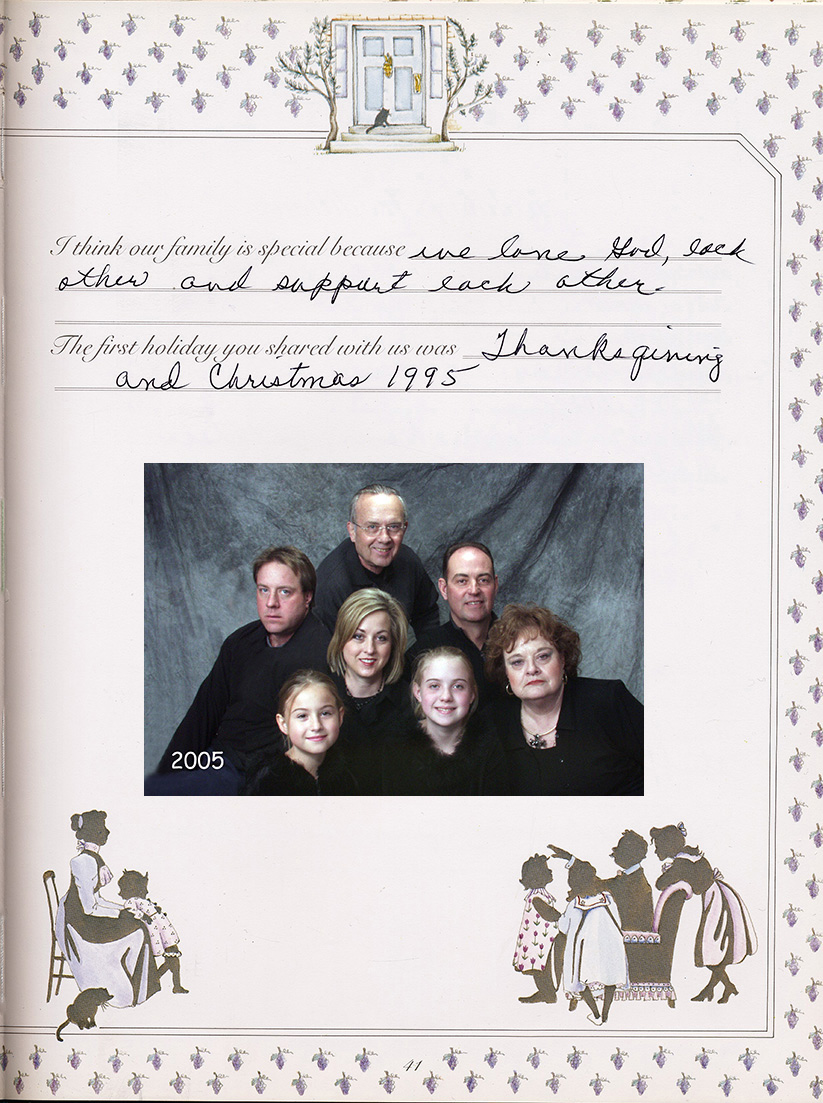 I think our family is special because we love God, each
other and support each other.
The first holiday you shared with us was Thanksgiving
and Christmas 1995
2005
41